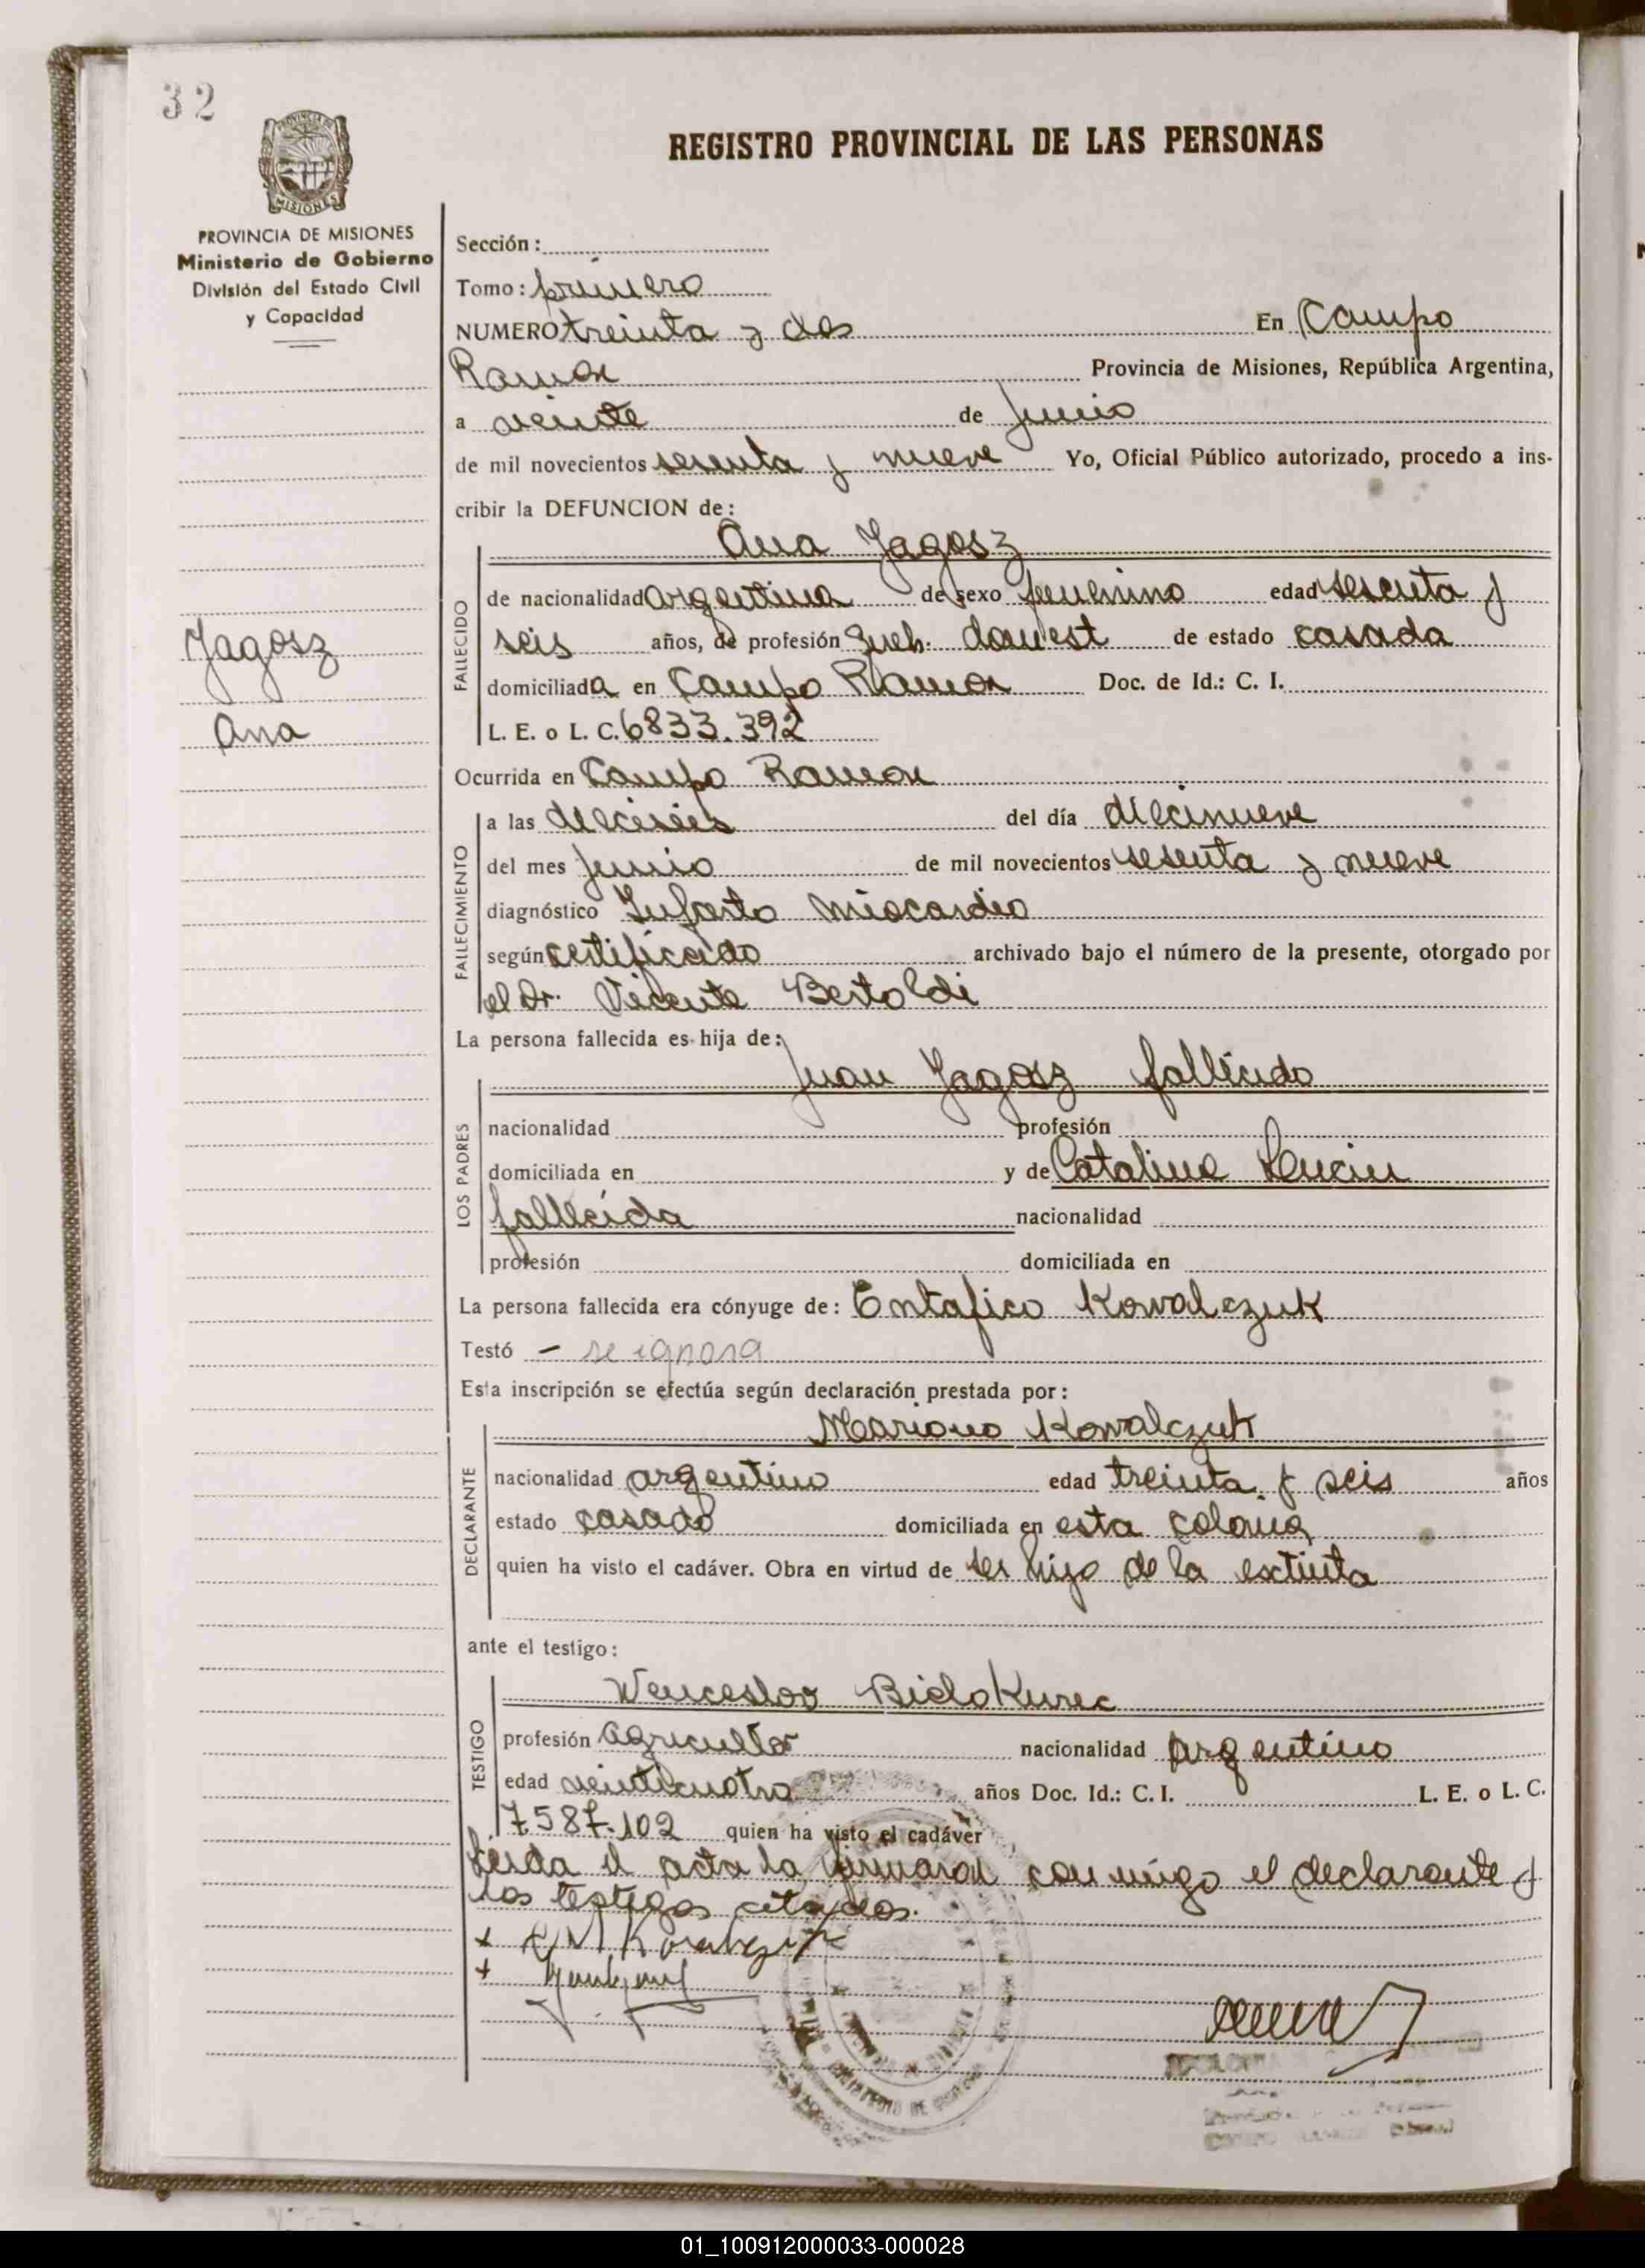 32
PROVINCIA DE
MISIONES
REGISTRO PROVINCIAL DE LAS PERSONAS
PROVINCIA DE MISIONES
Ministerio de Gobierno
División del Estado Civil
y Capacidad
Jagosz
Ana
Sección:
Tomo: primero
NUMERO treinta y dos En Campo
Ramon Provincia de Misiones, República Argentina,
a veinte de Junio
de mil novecientos sesenta y nueve Yo, Oficial Público autorizado, procedo a ins-
cribir la DEFUNCION de:
Ana Jagosz
FALLECIDO
de nacionalidad argentina de sexo femenino edad sesenta y
seis años, de profesión Queh. domest de estado casada
domiciliada en Campo Ramon Doc. de Id.: C. I.
L. E. o L. C. 6833.392
Ocurrida en Campo Ramon
FALLECIMIENTO
a las dieciseis del día diecinueve
del mes Junio de mil novecientos sesenta y nueve
diagnóstico Infarto miocardio
según certificado archivado bajo el número de la presente, otorgado por
el Dr. Vicente Bertoldi
La persona fallecida es hija de:
Juan Jagosz fallecido
LOS PADRES
nacionalidad profesión
domiciliada en y de Catalina
fallecida nacionalidad
profesión domiciliada en
La persona fallecida era cónyuge de: Entafico Kowalczuk
Testó - se ignora
Esta inscripción se efectúa según declaración prestada por:
Mariano Kowalczuk
DECLARANTE
nacionalidad argentino edad treinta y seis años
estado casado domiciliada en esta colonia
quien ha visto el cadáver. Obra en virtud de ser hijo de la extinta
ante el testigo:
Wenceslao Bielokurec
TESTIGO
profesión agricultor nacionalidad argentino
edad veinticuatro años Doc. Id.: C. I. L. E. o L. C.
7587.102 quien ha visto el cadáver
Leida el acta la firmaron conmigo el declarante y
los testigos citados.
01_100912000033-000028